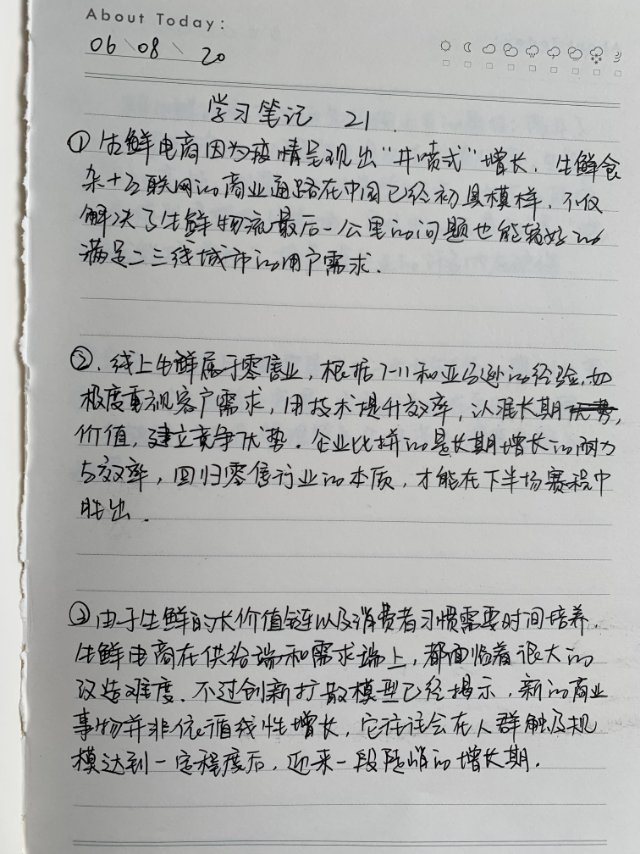 About Today:
06\08\20
学习笔记 21
① 生鲜电商因为疫情呈现出"井喷式"增长,生鲜食
杂+互联网的商业通路在中国已经初具模样,不仅
解决了生鲜物流最后一公里的问题也能较好的
满足二三线城市的用户需求.
②.线上生鲜属于零售业,根据7-11和亚马逊的经验,如
极度重视客户需求,用技术提升效率,认准长期优势,
价值,建立竞争优势.企业比拼的是长期增长的耐力
与效率,回归零售行业的本质,才能在下半场赛程中
胜出.
③由于生鲜的长价值链以及消费者习惯需要时间培养.
生鲜电商在供给端和需求端上,都面临着很大的
改造难度.不过创新扩散模型已经揭示,新的商业
事物并非依循线性增长,它往往会在人群触及规
模达到一定程度后,迎来一段陡峭的增长期.